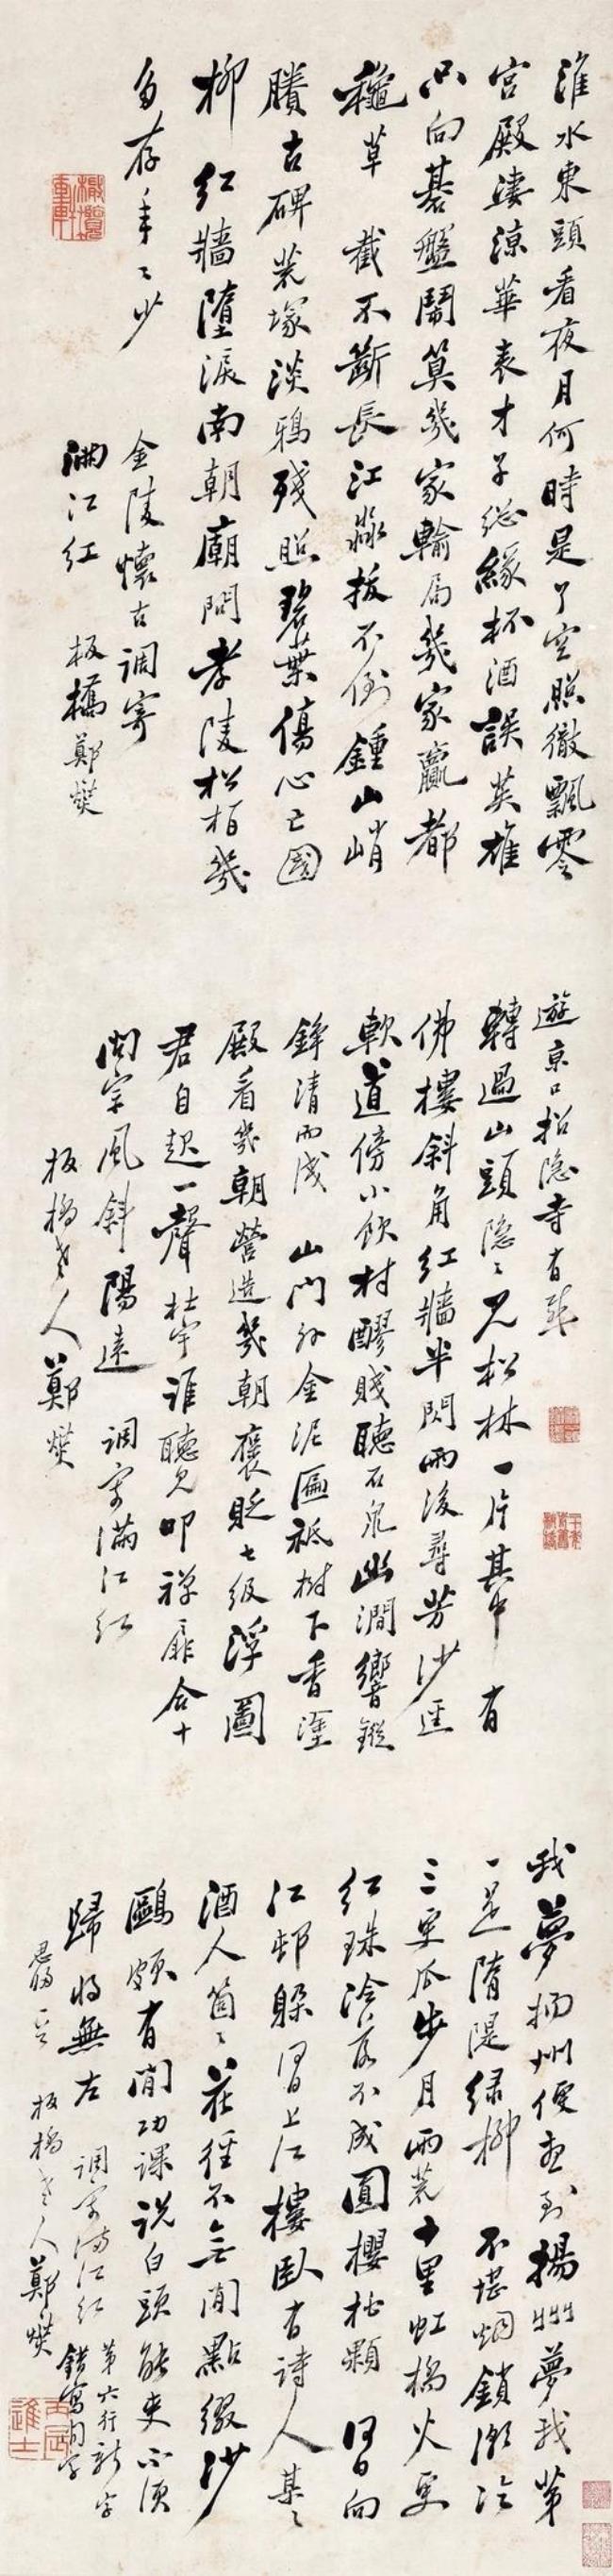 淮水東頭看夜月何時是了空照徹飄零
宮殿淒涼華表才子總緣杯酒誤英雄
只向棊盤鬧算幾家輸局幾家贏都
草 截不斷長江淼拔不倒鍾山峭
賸古碑荒塚淡鴉殘照碧葉傷心亡國
柳 紅牆墮淚南朝廟問孝陵松柏幾
多存年〻少
金陵懷古調寄
滿江紅 板橋鄭燮
遊京口招隱寺有
轉過山頭隱〻見松林一片其中有
佛樓斜角紅牆半閃雨後尋芳沙徑
軟道傍小飲村醪賤聽石泉幽澗響鏦
錚清而淺 山門外金泥匾祗樹下香塗
殿看幾朝營造幾朝褒貶七級浮圖
君自起一聲杜宇誰聽見叩禪扉合十
問宗風斜陽遠 調寄滿江紅
板橋老人鄭燮
我夢揚州便想到揚州夢我第
一是隋隄綠柳 不堪烟鎖潮
三更瓜步月雨荒十里虹橋火更
紅珠冷落不成圓櫻桃顆 何日向
江邨躲何日上江樓臥有詩人某〻
酒人箇〻花徑不無閒點綴沙
鷗頗有閒功課說白頭能吏不須
歸將無左 調寄滿江紅
思歸一首 板橋老人鄭燮
第六行 字
錯寫 字